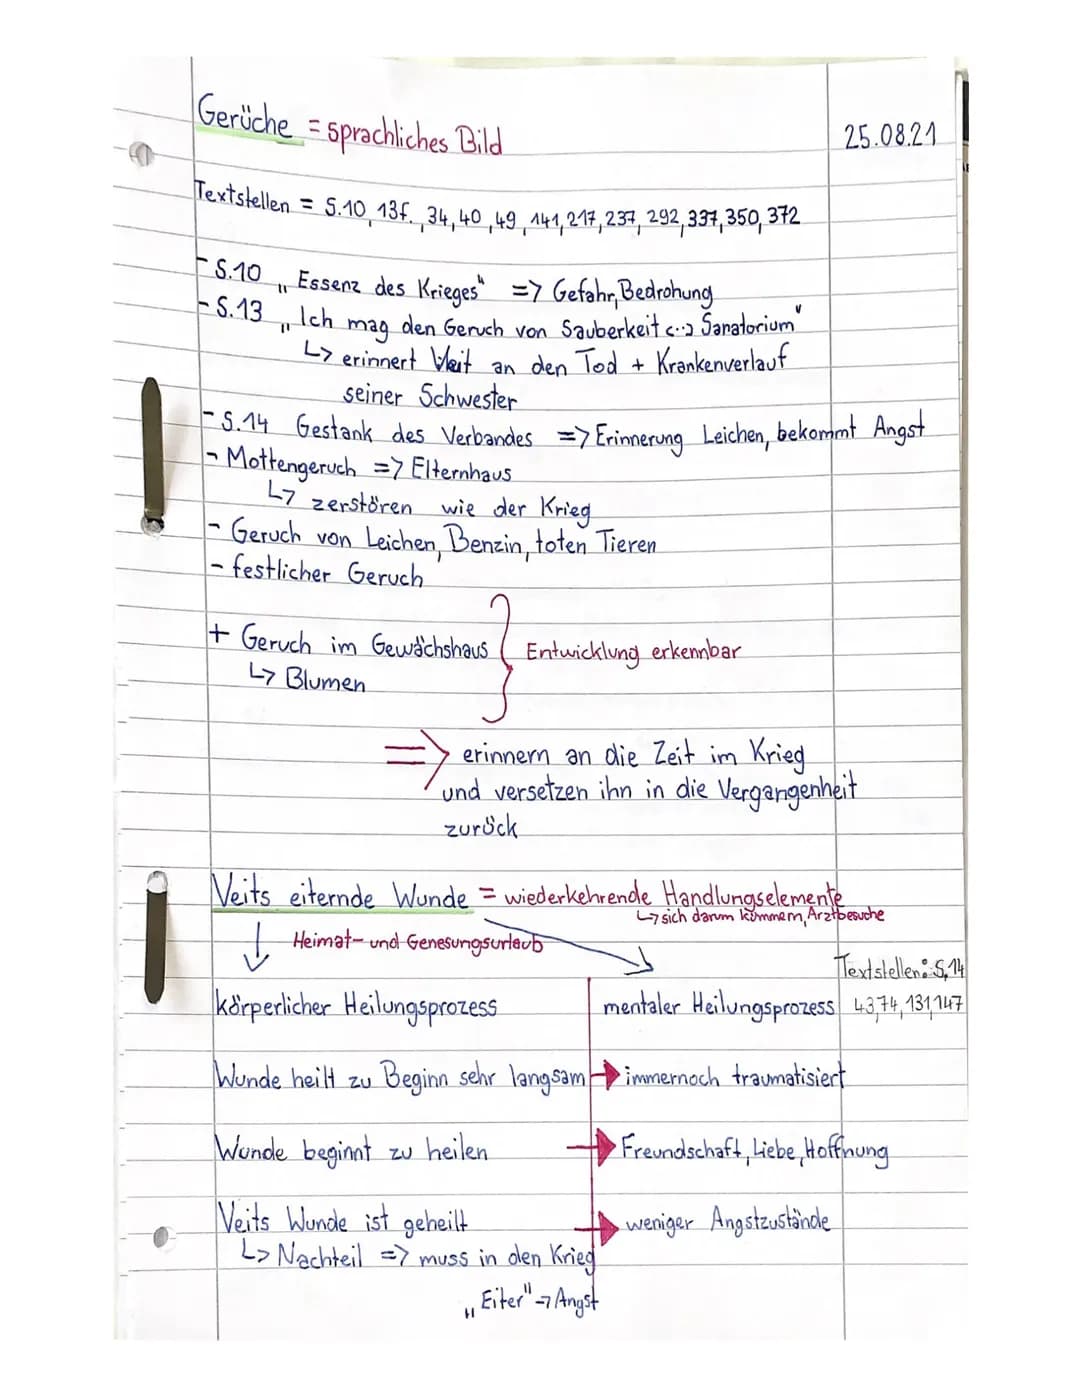 Gerüche = sprachliches Bild
25.08.21
Textstellen = S.10, 13f., 34, 40, 49, 141, 217, 237, 292, 337, 350, 372
- S.10 „Essenz des Krieges" => Gefahr, Bedrohung
- S.13 „Ich mag den Geruch von Sauberkeit <..> Sanatorium"
↳ erinnert Veit an den Tod + Krankenverlauf
seiner Schwester
- S.14 Gestank des Verbandes => Erinnerung Leichen, bekommt Angst
- Mottengeruch => Elternhaus
↳ zerstören wie der Krieg
- Geruch von Leichen, Benzin, toten Tieren
- festlicher Geruch
+ Geruch im Gewächshaus } Entwicklung erkennbar
↳ Blumen
=> erinnern an die Zeit im Krieg
und versetzen ihn in die Vergangenheit
zurück
Veits eiternde Wunde = wiederkehrende Handlungselemente
↳ sich darum kümmern, Arztbesuche
Heimat- und Genesungsurlaub
Textstellen: S.14
körperlicher Heilungsprozess mentaler Heilungsprozess 43, 74, 131, 147
Wunde heilt zu Beginn sehr langsam → immernoch traumatisiert
Wunde beginnt zu heilen → Freundschaft, Liebe, Hoffnung
Veits Wunde ist geheilt → weniger Angstzustände
↳ Nachteil => muss in den Krieg
„Eiter" → Angst